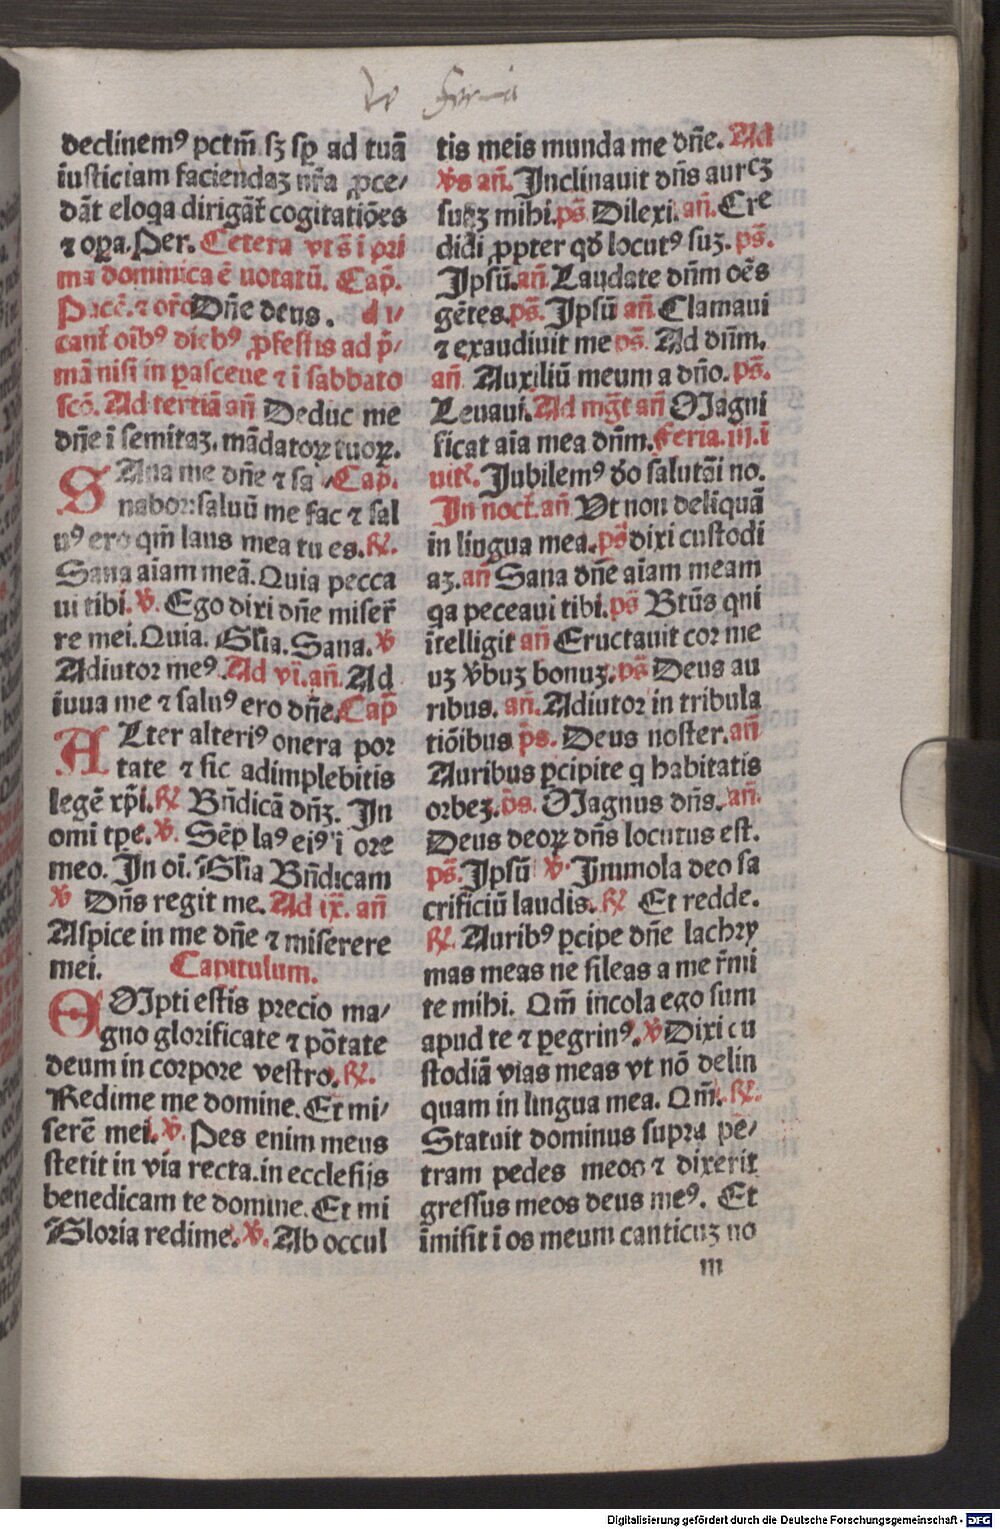 declinemꝰ pctm̄ sꝫ sꝑ ad tuā
iusticiam faciendaꝫ nr̄a ꝓce/
dāt eloqa dirigāt̄ cogitatiōes
⁊ oꝑa. Per. Cetera vts̄ i pri
ma dominica ē notatū. Cap̄.
Pacē. ⁊ or̄o Dn̄e deus. di/
cant̄ oībꝰ diebꝰ ꝓfestis ad p̄/
mā nisi in ꝑasceue ⁊ ī sabbato
scō. Ad tertiā an̄ Deduc me
dn̄e ī semitaꝫ. mādatoꝝ tuoꝝ.
SAna me dn̄e ⁊ sa/ Cap̄.
nabor: saluū me fac ⁊ sal
uꝰ ero qm̄ laus mea tu es. ℟.
Sana aīam meā. Quia pecca
ui tibi. ℣. Ego dixi dn̄e miser̄
re mei. Quia. Gl̄ia. Sana. ℣
Adiutor meꝰ. Ad vī. an̄. Ad
iuua me ⁊ saluꝰ ero dn̄e. Cap̄
ALter alteriꝰ onera por
tate ⁊ sic adimplebitis
legē xp̄i. ℟ Bn̄dicā dn̄ꝫ. In
omī tꝑe. ℣. Sēꝑ laꝰ eiꝰ ī ore
meo. In oī. Gl̄ia Bn̄dicam
℣ Dn̄s regit me. Ad ix̄. an̄
Aspice in me dn̄e ⁊ miserere
mei. Capitulum.
EMpti estis precio ma/
gno glorificate ⁊ pōtate
deum in corpore vestro. ℟.
Redime me domine. Et mi/
serē mei. ℣. Pes enim meus
stetit in via recta. in ecclesijs
benedicam te domine. Et mi
Gloria redime. ℣. Ab occul
tis meis munda me dn̄e. Ad
v̄s an̄. Inclinauit dn̄s aureꝫ
suaꝫ mihi. ps̄. Dilexi. an̄. Cre
didi ꝓpter qd̄ locutꝰ suꝫ. ps̄.
Ipsū. an̄. Laudate dn̄m oēs
gētes. ps̄. Ipsū an̄ Clamaui
⁊ exaudiuit me ps̄. Ad dn̄m.
an̄ Auxiliū meum a dn̄o. ps̄.
Leuaui. Ad mḡt an̄ Magni
ficat aīa mea dn̄m. Feria. iii. ī
uit̄. Jubilemꝰ d̄o salutāi no.
In noct̄. an̄ Vt non deliquā
in lingua mea. ps̄ dixi custodi
aꝫ. an̄ Sana dn̄e aīam meam
qa peccaui tibi. ps̄ Bt̄us qui
ītelligit an̄ Eructauit cor me
uꝫ v̄buꝫ bonuꝫ. ps̄ Deus au
ribus. an̄. Adiutor in tribula
tiōibus p̄s. Deus noster. an̄
Auribus ꝑcipite q habitatis
orbeꝫ. p̄s. Magnus dn̄s. an̄.
Deus deoꝝ dn̄s locutus est.
ps̄. Ipsū ℣. Immola deo sa
crificiū laudis. ℟ Et redde.
℟. Auribꝰ ꝑcipe dn̄e lachry
mas meas ne sileas a me r̄mi
te mihi. Qm̄ incola ego sum
apud te ⁊ ꝑegrinꝰ. ℣ Dixi cu
stodiā vias meas vt nō delin
quam in lingua mea. Qm̄. ℟.
Statuit dominus supra pe/
tram pedes meos ⁊ dixerit
gressus meos deus meꝰ. Et
īmisit ī os meum canticuꝫ no
m
Digitalisierung gefördert durch die Deutsche Forschungsgemeinschaft - DFG